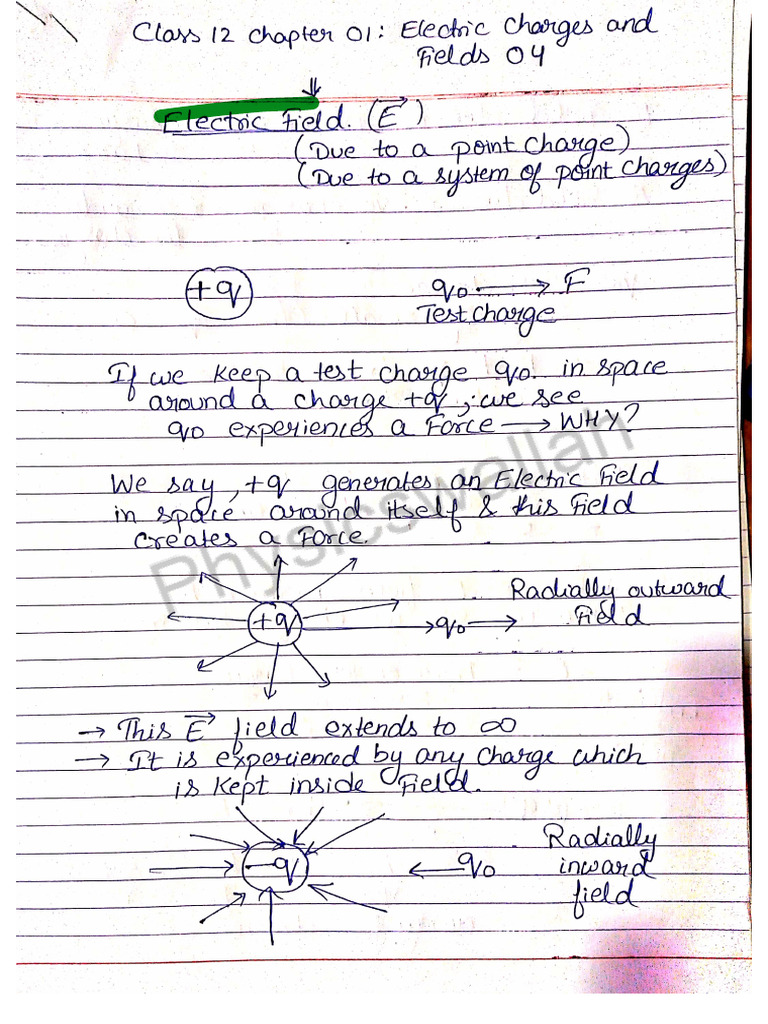 Class 12 chapter 01: Electric Charges and
Fields 04
Electric Field. (E⃗)
(Due to a point charge)
(Due to a system of point charges)
+q
q₀ → F
Test charge
If we keep a test charge q₀ in space
around a charge +q, we see
q₀ experiences a Force → WHY?
We say, +q generates an Electric Field
in space around itself & this Field
creates a Force.
Physicswallah
Radially outward
Field
+q
→ q₀ →
→ This E⃗ field extends to ∞
→ It is experienced by any charge which
is kept inside Field.
Radially
inward
field
-q
← q₀